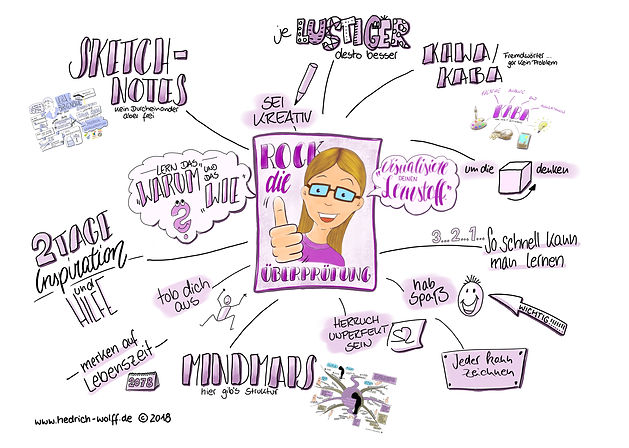 SKETCH-
NOTES
kein Durcheinander
aber frei
je LUSTIGER
desto besser
KAWA/
KABA
Fremdwörter...
gar kein Problem
KABA
SEI
KREATIV
ROCK
die
ÜBERPRÜFUNG
LERN DAS
"WARUM"
UND
DAS
"WIE"
"Visualisiere
DEINEN
Lernstoff"
um die
denken
2 TAGE
Inspiration
und
HILFE
3...2...1...
So schnell kann
man lernen
tob dich
aus
hab
Spaß
WICHTIG!!!!!
HERRLICH
UNPERFEKT
SEIN
merken auf
Lebenszeit
2078
MINDMAPS
hier gib's Struktur
Jeder kann
zeichnen
www.hedrich-wolff.de © 2018